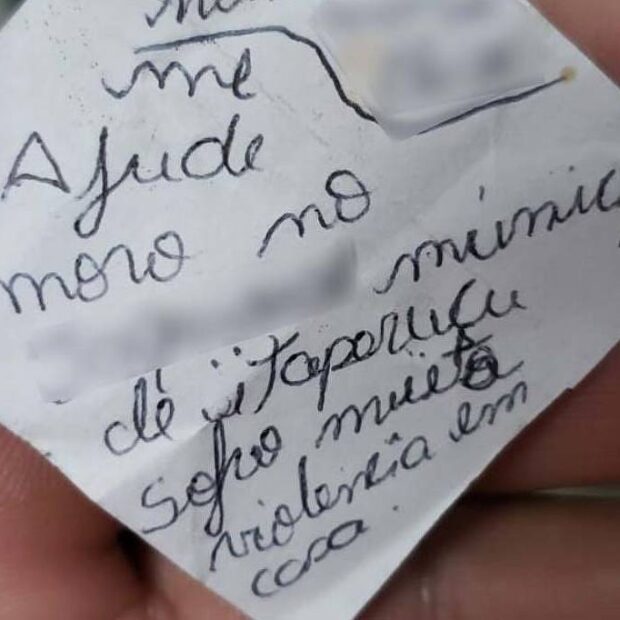 me
Ajude
moro no
múnic
dé iitaporucu
sofro muieta
violencia em
casa.